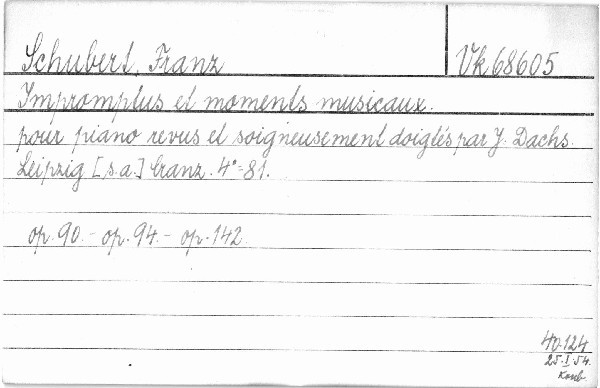 Schubert, Franz
Vk 68605
Impromptus et moments musicaux.
pour piano revus et soigneusement doigtés par J. Dachs.
Leipzig [s.a.] Cranz. 4° = 81.
op. 90. - op. 94. - op. 142
40.124
25.I.54.